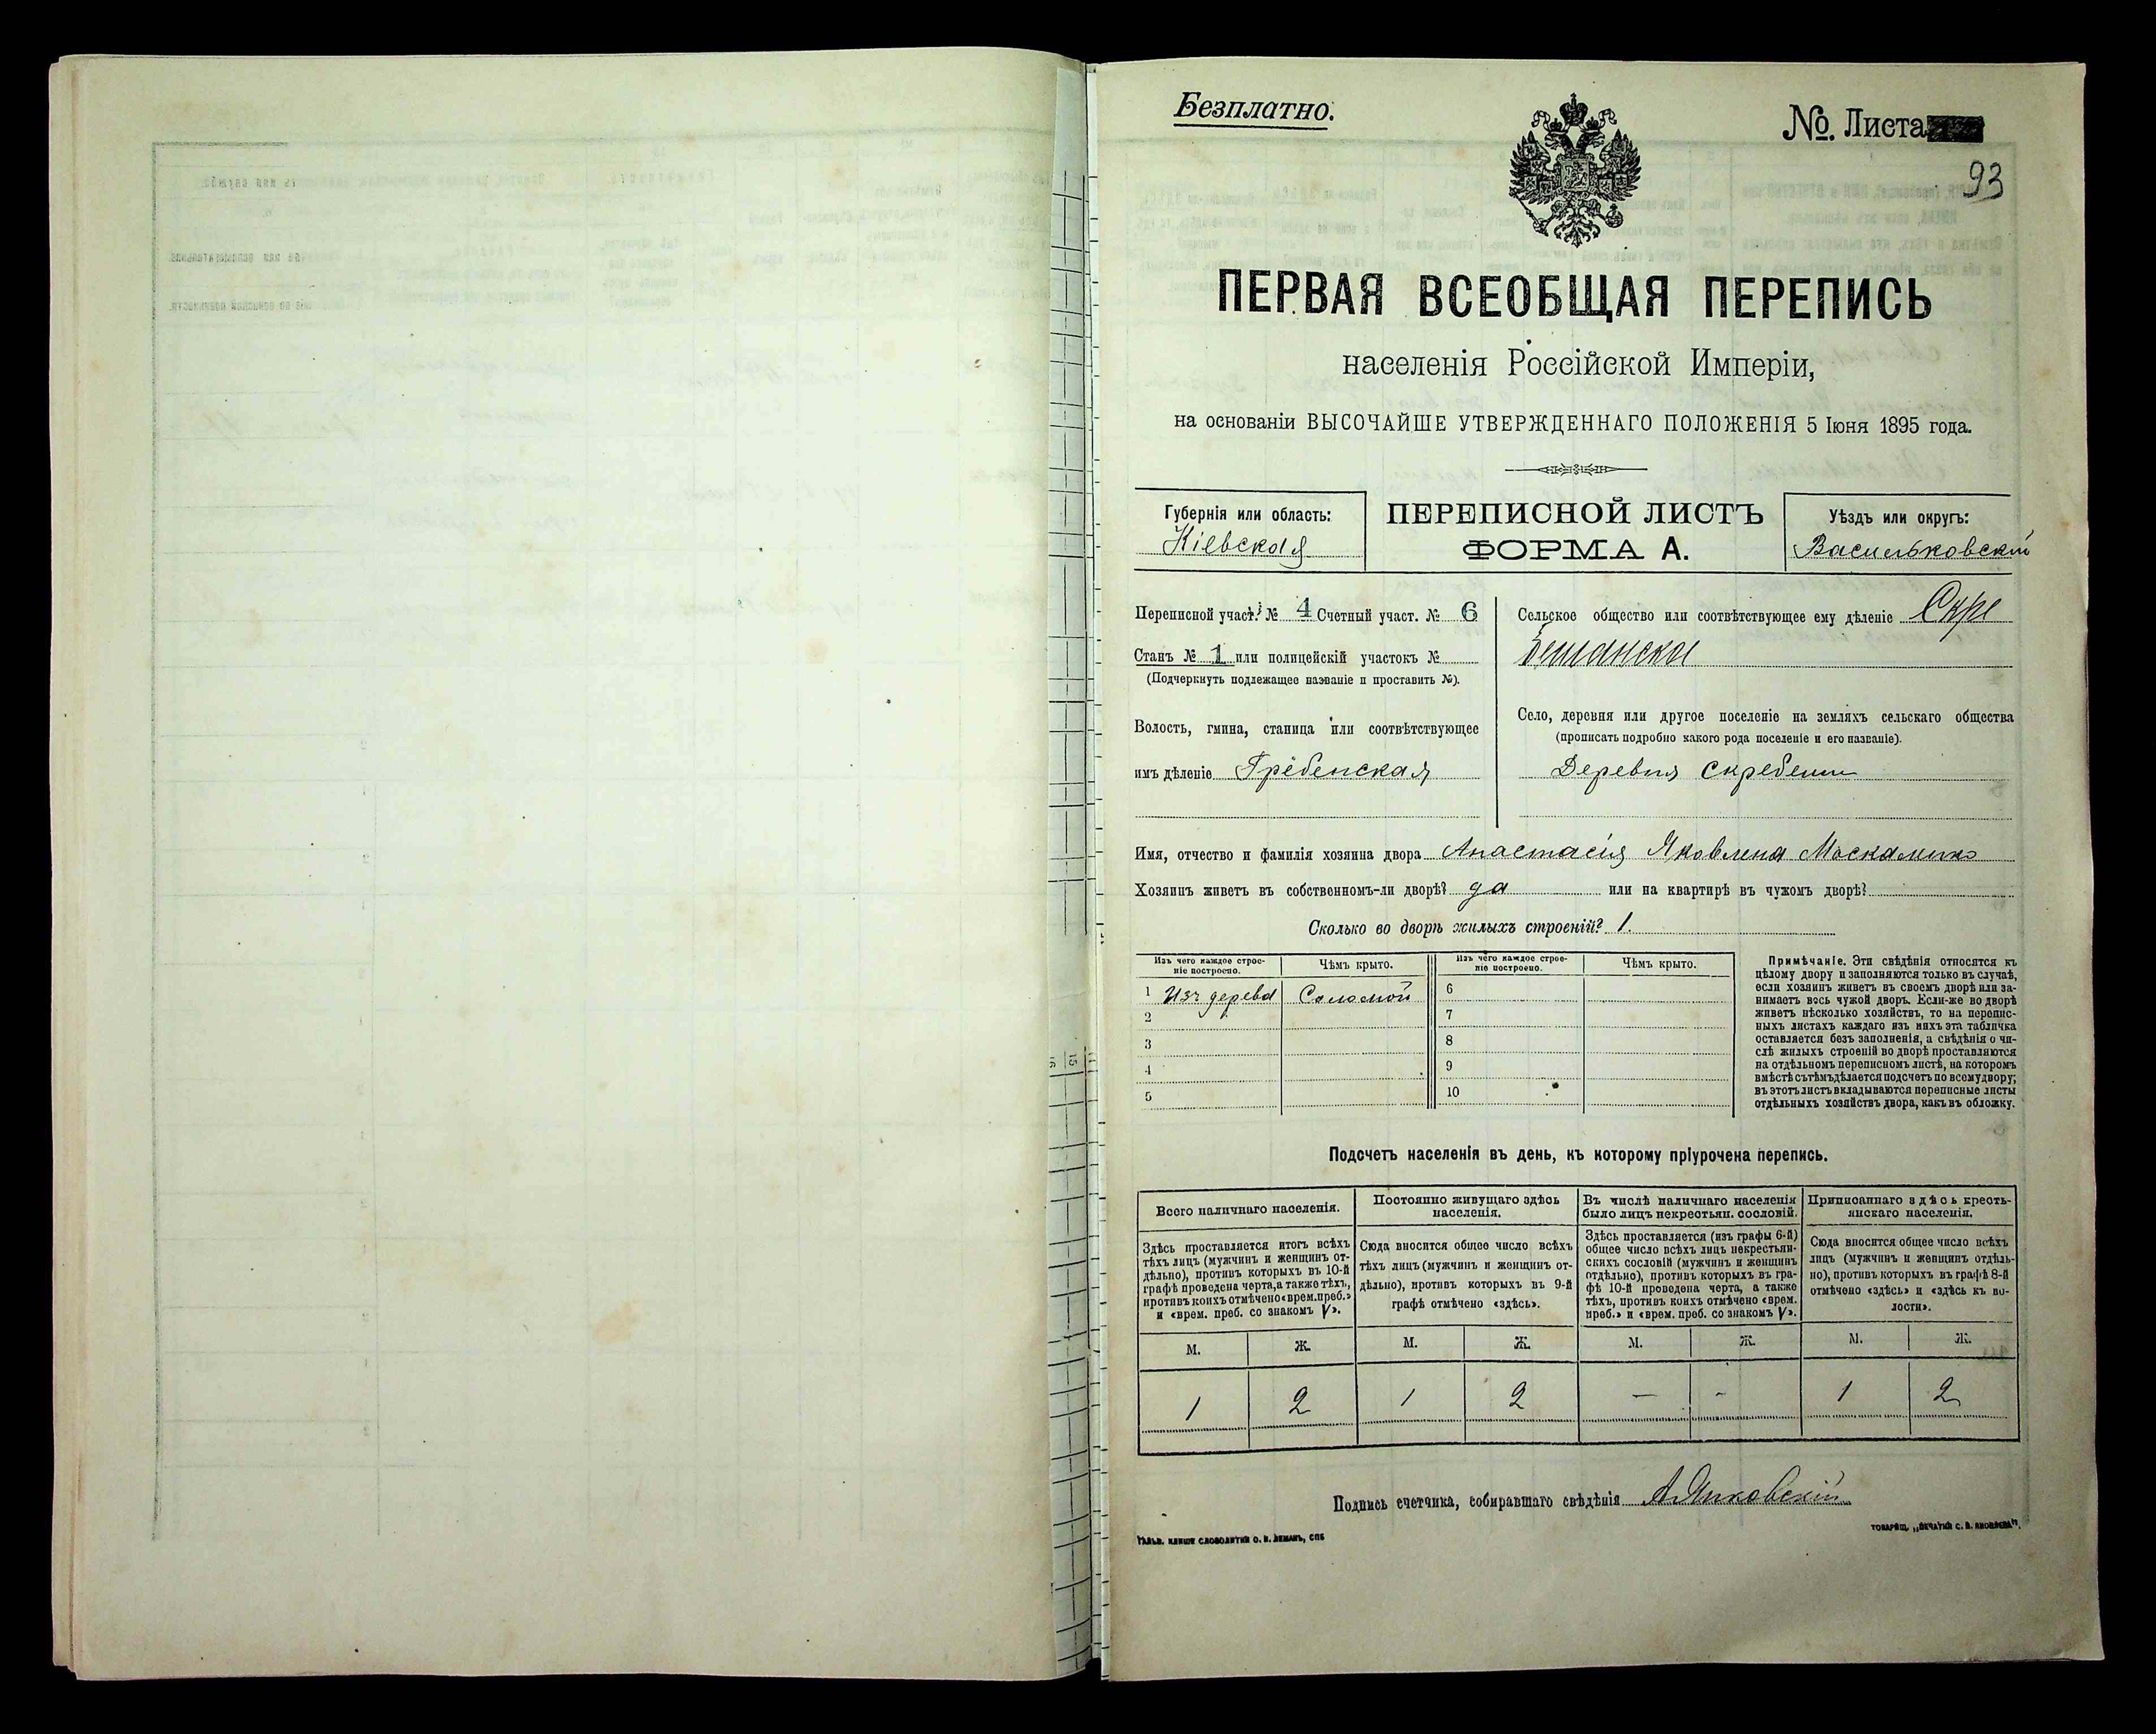 Безплатно.
№. Листа
93
ПЕРВАЯ ВСЕОБЩАЯ ПЕРЕПИСЬ
населенія Россійской Имперіи,
на основаніи ВЫСОЧАЙШЕ УТВЕРЖДЕННАГО ПОЛОЖЕНІЯ 5 Іюня 1895 года.
Губернія или область:
Кіевская
ПЕРЕПИСНОЙ ЛИСТЪ
ФОРМА А.
Уѣздъ или округъ:
Васильковскій
Переписной участ. № 4 Счетный участ. № 6
Станъ № 1 или полицейскій участокъ №
(Подчеркнуть подлежащее названіе и проставить №).
Волость, гмина, станица или соотвѣтствующее
имъ дѣленіе Гребенская
Сельское общество или соотвѣтствующее ему дѣленіе Скре
бешанское
Село, деревня или другое поселеніе на земляхъ сельскаго общества
(прописать подробно какого рода поселеніе и его названіе).
Деревня Скребеши
Имя, отчество и фамилія хозяина двора Анастасія Яковлена
Хозяинъ живетъ въ собственномъ-ли дворѣ? да или на квартирѣ въ чужомъ дворѣ?
Сколько во дворѣ жилыхъ строеній? 1.
Изъ чего каждое строе-
ніе построено.
Чѣмъ крыто.
Изъ чего каждое строе-
ніе построено.
Чѣмъ крыто.
1 Изъ дерева Соломой
2
3
4
5
6
7
8
9
10
Примѣчаніе. Эти свѣдѣнія относятся къ
цѣлому двору и заполняются только въ случаѣ,
если хозяинъ живетъ въ своемъ дворѣ или за-
нимаетъ весь чужой дворъ. Если-же во дворѣ
живетъ нѣсколько хозяйствъ, то на перепис-
ныхъ листахъ каждаго изъ нихъ эта табличка
оставляется безъ заполненія, а свѣдѣнія о чи-
слѣ жилыхъ строеній во дворѣ проставляются
на отдѣльномъ переписномъ листѣ, на которомъ
вмѣстѣ съ тѣмъ дѣлается подсчетъ по всему двору;
въ этотъ листъ вкладываются переписные листы
отдѣльныхъ хозяйствъ двора, какъ въ обложку.
Подсчетъ населенія въ день, къ которому пріурочена перепись.
Всего наличнаго населенія.
Здѣсь проставляется итогъ всѣхъ
тѣхъ лицъ (мужчинъ и женщинъ от-
дѣльно), противъ которыхъ въ 10-й
графѣ проведена черта, а также тѣхъ,
противъ коихъ отмѣчено «врем. преб.»
и «врем. преб. со знакомъ V».
Постоянно живущаго здѣсь
населенія.
Сюда вносится общее число всѣхъ
тѣхъ лицъ (мужчинъ и женщинъ от-
дѣльно), противъ которыхъ въ 9-й
графѣ отмѣчено «здѣсь».
Въ числѣ наличнаго населенія
было лицъ некрестьян. сословій.
Здѣсь проставляется (изъ графы 6-й)
общее число всѣхъ лицъ некрестьян-
скихъ сословій (мужчинъ и женщинъ
отдѣльно), противъ которыхъ въ гра-
фѣ 10-й проведена черта, а также
тѣхъ, противъ коихъ отмѣчено «врем.
преб.» и «врем. преб. со знакомъ V».
Приписаннаго здѣсь кресть-
янскаго населенія.
Сюда вносится общее число всѣхъ
лицъ (мужчинъ и женщинъ отдѣль-
но), противъ которыхъ въ графѣ 8-й
отмѣчено «здѣсь» и «здѣсь къ во-
лости».
М. Ж. М. Ж. М. Ж. М. Ж.
1 2 1 2 — - 1 2
Подпись счетчика, собиравшаго свѣдѣнія
ГАЛЬВ. КЛИШЕ СЛОВОЛИТНИ О. И. ЛЕМАНЪ, СПБ
ТОВАРИЩ. „ПЕЧАТНЯ С. П. ЯКОВЛЕВА".